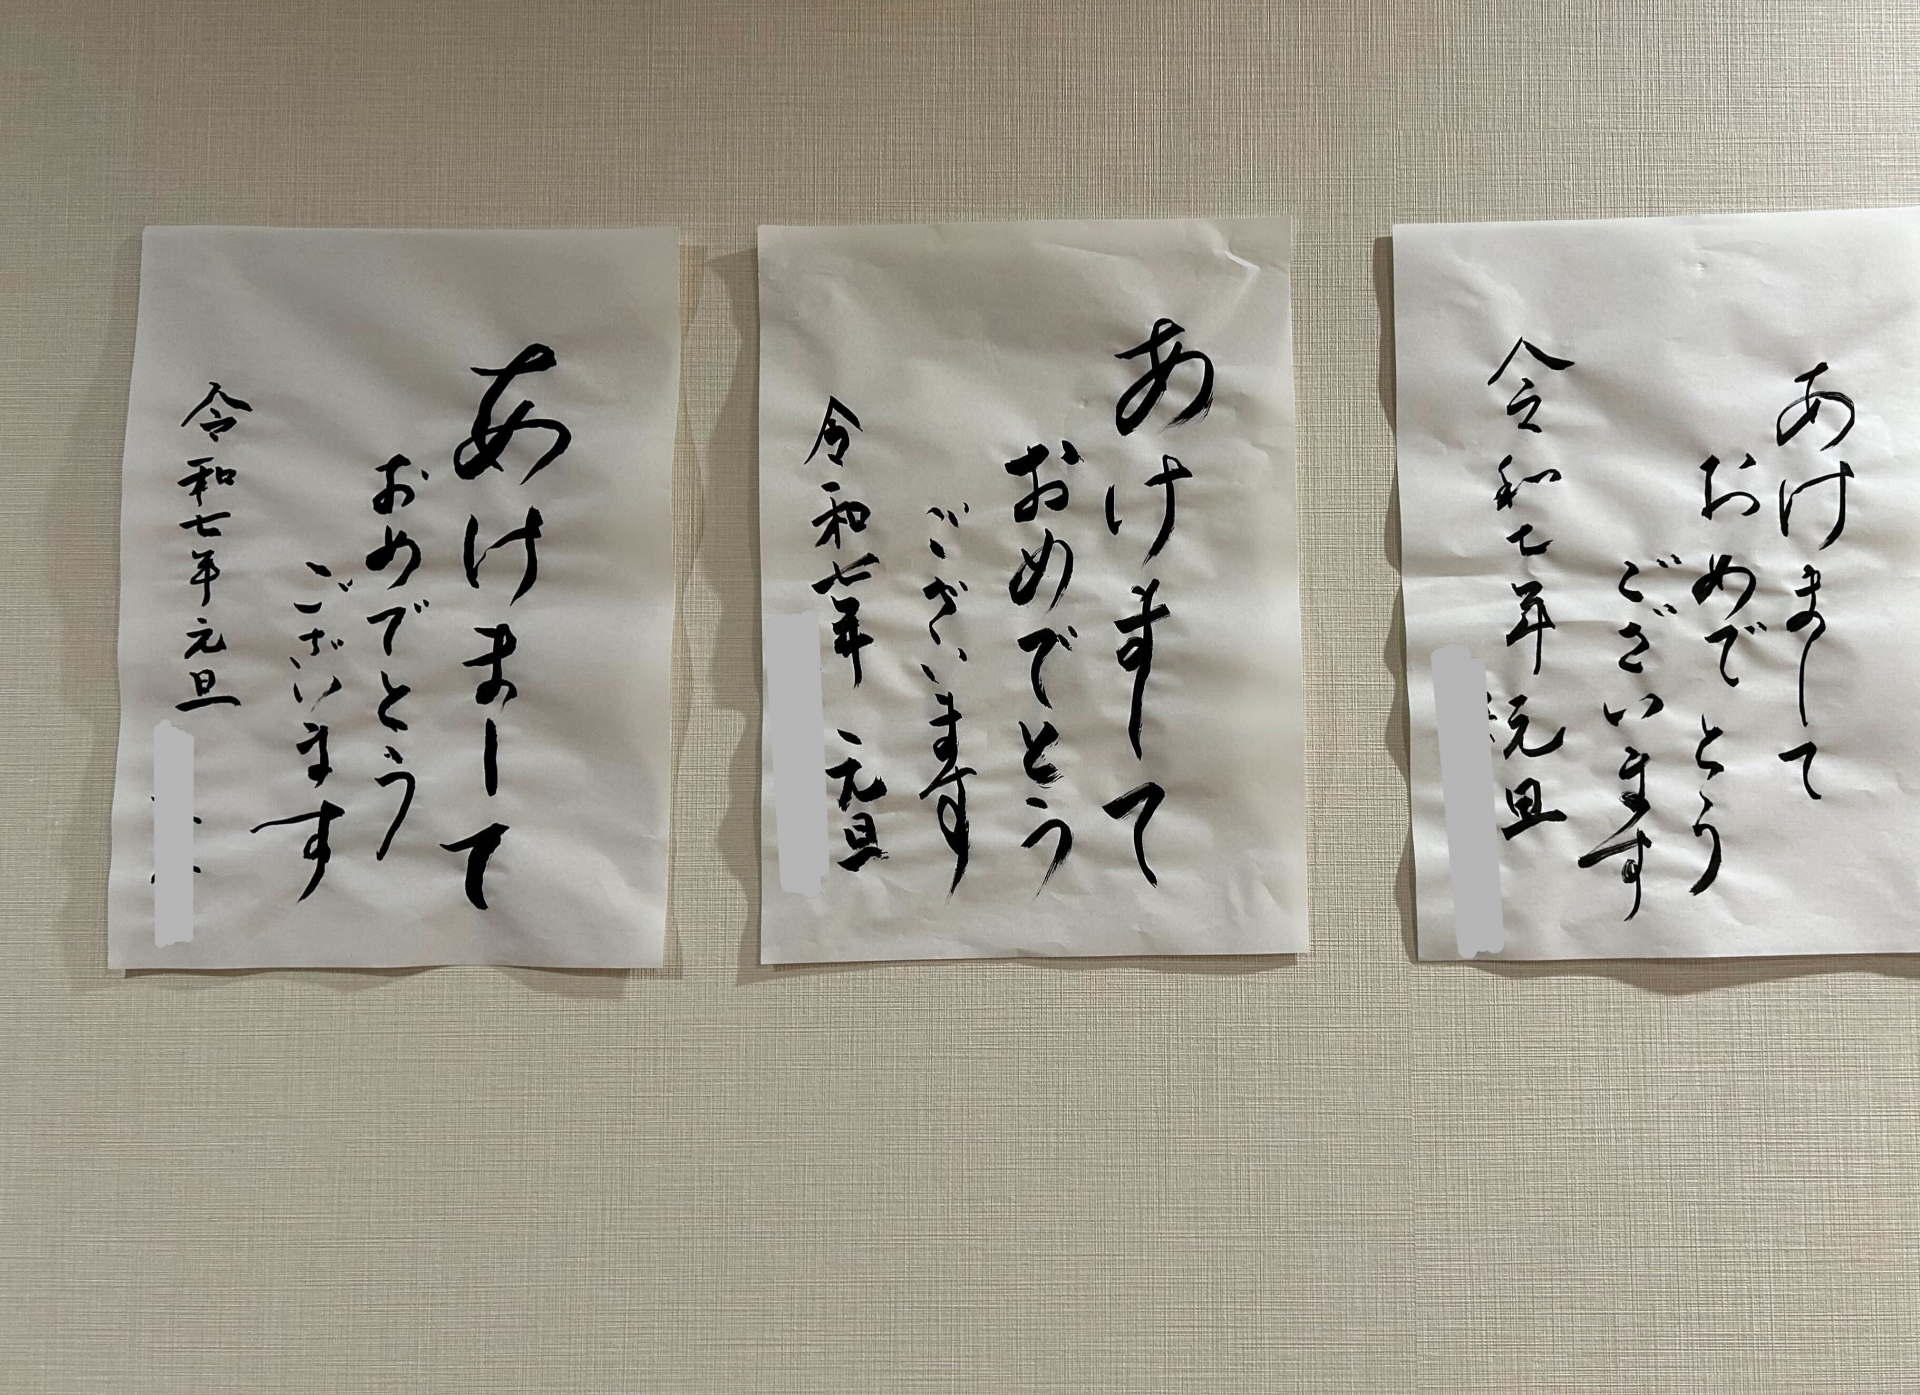 あけまして
おめでとう
ございます
令和七年元旦
あけまして
おめでとう
ございます
令和七年元旦
あけまして
おめでとう
ございます
令和七年元旦